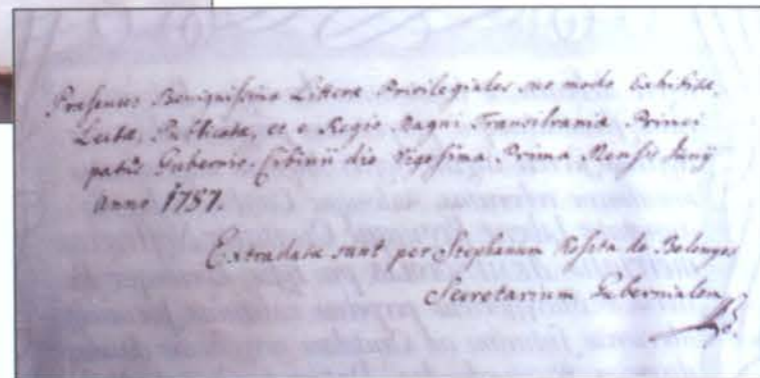 Præsentes Benignissimæ Litteræ Privilegiales suo modo Exhibitæ,
Lectæ, Publicatæ, et e Regio Magni Transilvaniæ Princi
patûs Gubernio. Cibinii die Vigesima Prima Mensis Junÿ
Anno 1787.
Extradatæ sunt per Stephanum de
Secretarium Gubernialem